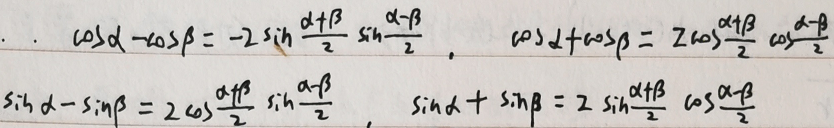 ∴ cosα-cosβ = -2 sin (α+β)/2 sin (α-β)/2, cosα+cosβ = 2cos (α+β)/2 cos (α-β)/2
sinα-sinβ = 2cos (α+β)/2 sin (α-β)/2, sinα+sinβ = 2 sin (α+β)/2 cos (α-β)/2